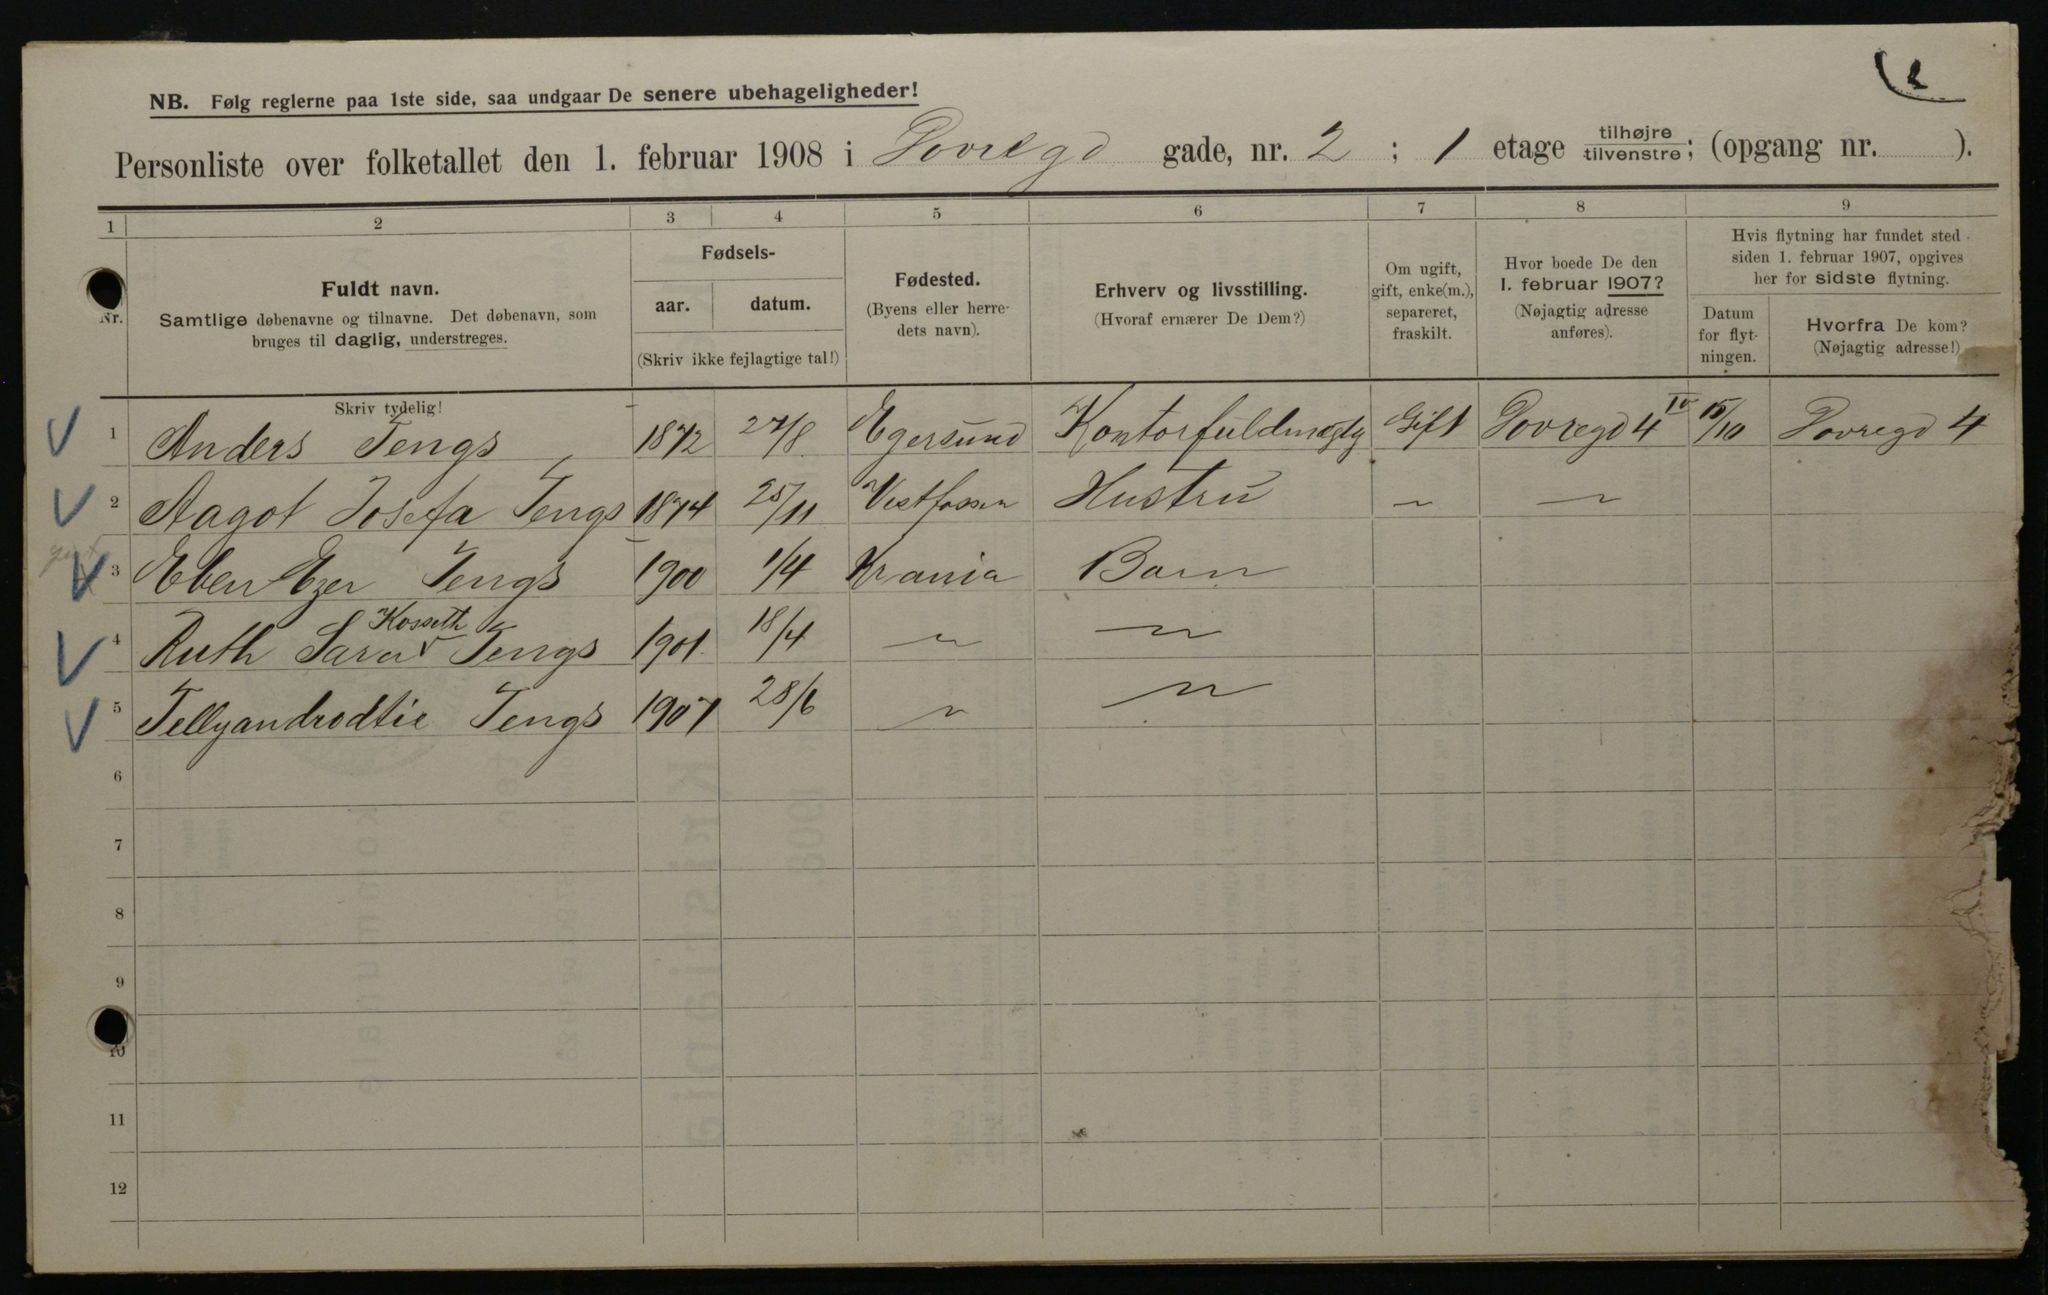 NB. Følg reglerne paa 1ste side, saa undgaar De senere ubehageligheder!
Personliste over folketallet den 1. februar 1908 i Dovregd gade, nr. 2 ; 1 etage tilhøjre tilvenstre; (opgang nr. ).
1 2 3 4 5 6 7 8 9
Nr.
Fuldt navn.
Samtlige døbenavne og tilnavne. Det døbenavn, som
bruges til daglig, understreges.
Fødsels-
aar. datum.
(Skriv ikke fejlagtige tal!)
Fødested.
(Byens eller herre-
dets navn).
Erhverv og livsstilling.
(Hvoraf ernærer De Dem?)
Om ugift,
gift, enke(m.),
separeret,
fraskilt.
Hvor boede De den
1. februar 1907?
(Nøjagtig adresse
anføres).
Hvis flytning har fundet sted
siden 1. februar 1907, opgives
her for sidste flytning.
Datum
for flyt-
ningen.
Hvorfra De kom?
(Nøjagtig adresse!)
Skriv tydelig!
1 Anders Tengs 1872 27/8 Egersund Kontorfuldmægtig Gift Dovregd 4 IV 15/10 Dovregd 4
2 Aagot Josefa Tengs 1874 25/11 Vestfossen Hustru " "
3 Eben Ezer Tengs 1900 1/4 Krania Barn
4 Ruth Sara Kosseth Tengs 1901 18/4 " "
5 Tellyandrodtie Tengs 1907 28/6 " "
6
7
8
9
10
11
12